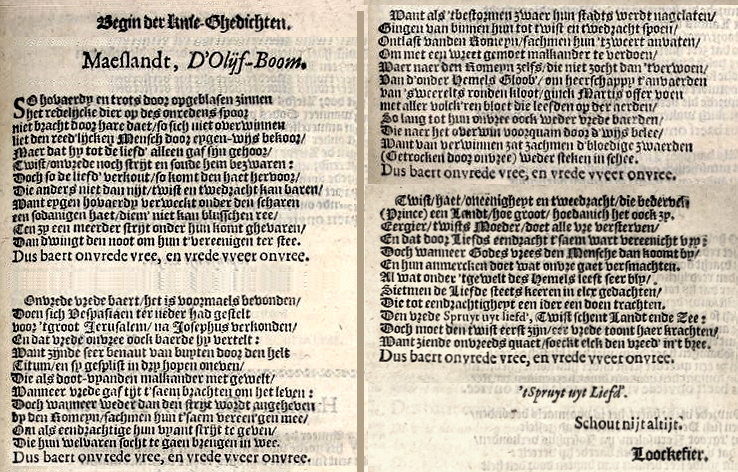 Begin der knie-Ghedichten.
Maeslandt, D'Olijf-Boom.
SO hovaerdy en trots door opgeblasen zinnen
het redelijcke dier op des onredens spoor
niet bracht door hare daet/so sich niet overwinnen
liet den reed'lijcken Mensch door eygen-wijs bekoor/
Maer dat hy tot de liefd' alleen gaf sijn gehoor/
Twist/onvrede noch strijt en soude hem bezwaren:
Doch so de liefd' verkout/so komt den haet hervoor/
Die anders niet dan nijt/twist en twedracht kan baren/
Want eygen hovaerdy verweckt onder den scharen
een sodanigen haet/diem' niet kan blusschen ree/
Ten zy een meerder strijt onder hun komt ghevaren/
Dan dwingt den noot om hun t'vereenigen ter stee.
Dus baert onvrede vree, en vrede vveer onvree.
Onvrede vrede baert/het is voormaels bevonden/
Doen sich Vespasiaen ter neder had gestelt
voor 'tgroot Jerusalem/ na Josephus verkonden/
En dat vrede onvree oock baerde hy vertelt:
Want zijnde seer benaut van buyten door den helt
Titum/en sy gesplist in dry hopen oneven/
Die als doot-vyanden malkander met gewelt/
Wanneer vrede gaf tijt t'saem brachten om het leven:
Doch wanneer weder dan den strijt wordt angeheven
by den Romeyn/sachmen hun t'saem vereen'gen mee/
Om als eendrachtige hun vyant strijt te geven/
Die hun welvaren socht te gaen brengen in wee.
Dus baert onvrede vree, en vrede vveer onvree.
Want als 'tbestormen zwaer hun stadts werdt nagelaten/
Gingen van binnen hun tot twist en twedracht spoen/
Ontlast vanden Romeyn/sachmen hun 'tzweert anvaten/
Om met een wreet gemoet malkander te verdoen/
Maer naer den Romeyn zelfs/die niet zocht dan 'tverwoen/
Van d'onder Hemels Gloob'/om heerschappy t'anvaerden
van 's'weerelts ronden kloot/ginck Martis offer voen
met aller volck'ren bloet die leefden op der aerden/
So lang tot hun onvree oock weder vrede baerden/
Die naer het overwin voorquam door d'wijs belee/
Want van verwinnen zat zachmen d'bloedige zwaerden
(Getrocken door onvree) weder steken in schee.
Dus baert onvrede vree, en vrede vveer onvree.
Twist/haet/oneenigheyt en tweedracht/die bederven
(Prince) een Landt/hoe groot/hoedanich het oock zy.
Eergier/twists Moeder/doet alle vre versterven/
En dat door Liefds eendracht t'saem wart vereenicht vry:
Doch wanneer Godes vrees den Mensche dan koomt by/
En hun anmercken doet wat onvre gaet versmachten.
Al wat onder 'tgewelt des Hemels leeft seer bly/
Sietmen de Liefde steets keeren in elcx gedachten/
Die tot eendrachtigheyt een ider een doen trachten.
Den vrede Spruyt uyt liefd', Twist schent Landt ende Zee:
Doch moet den twist eerst zijn/eer vrede toont haer krachten/
Want ziende onvreeds quaet/soeckt elck den vreed' in't bree.
Dus baert onvrede vree, en vrede vveer onvree.
'tSpruyt uyt Liefd'.
Schout nijt altijt.
Loockefier.